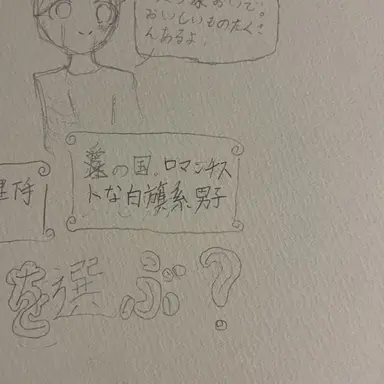 家おいで。
おいしいものたくさ
んあるよ.
の国.ロマンチス
トな白旗系男子
を選ぶ?